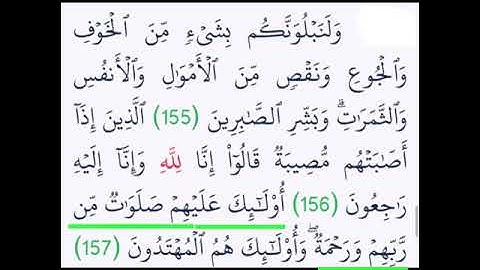 وَلَنَبۡلُوَنَّكُم بِشَيۡءٖ مِّنَ ٱلۡخَوۡفِ
وَٱلۡجُوعِ وَنَقۡصٖ مِّنَ ٱلۡأَمۡوَٰلِ وَٱلۡأَنفُسِ
وَٱلثَّمَرَٰتِۗ وَبَشِّرِ ٱلصَّٰبِرِينَ (155) ٱلَّذِينَ إِذَآ
أَصَٰبَتۡهُم مُّصِيبَةٞ قَالُوٓاْ إِنَّا لِلَّهِ وَإِنَّآ إِلَيۡهِ
رَٰجِعُونَ (156) أُوْلَٰٓئِكَ عَلَيۡهِمۡ صَلَوَٰتٞ مِّن
رَّبِّهِمۡ وَرَحۡمَةٞۖ وَأُوْلَٰٓئِكَ هُمُ ٱلۡمُهۡتَدُونَ (157)